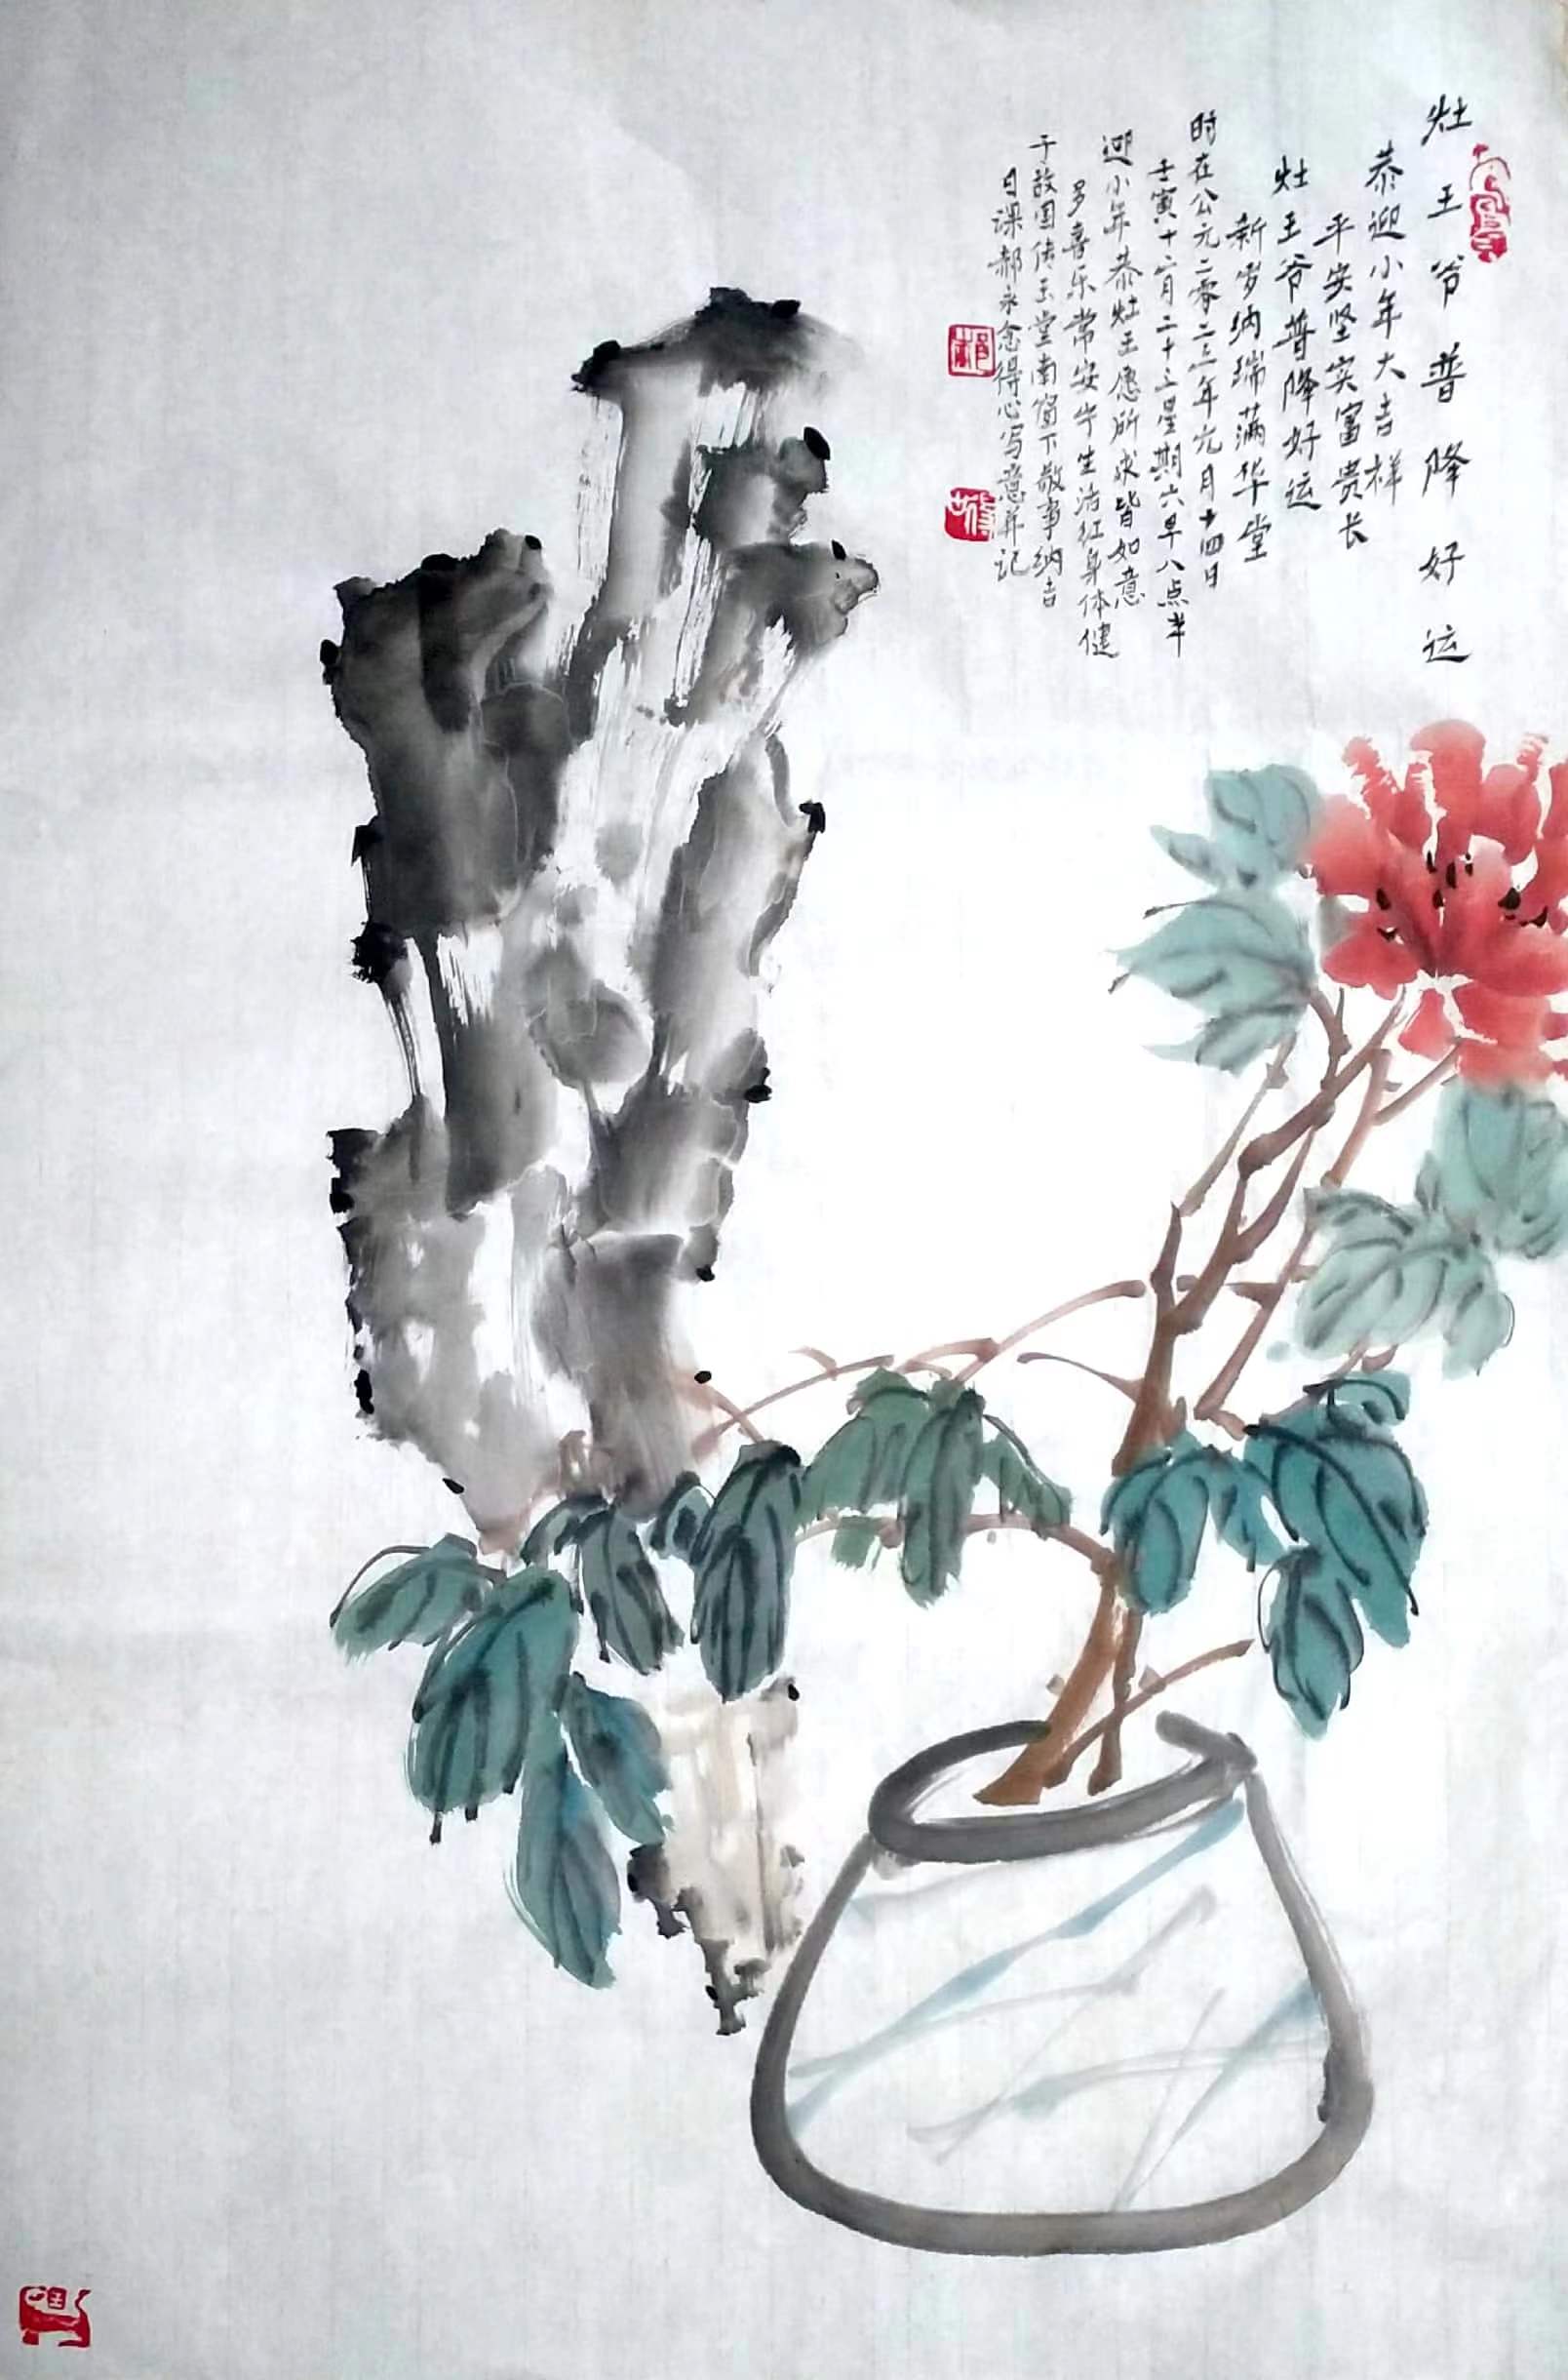 灶王爷普降好运
恭迎小年大吉祥
平安坚实富贵长
灶王爷普降好运
新岁纳瑞满华堂
时在公元二零二三年元月十四日
壬寅十二月二十三星期六早八点半
迎小年恭灶王愿所求皆如意
多喜乐常安宁生活红身体健
于故园传玉堂南窗下敬事纳吉
日课郝永念得心写意并记